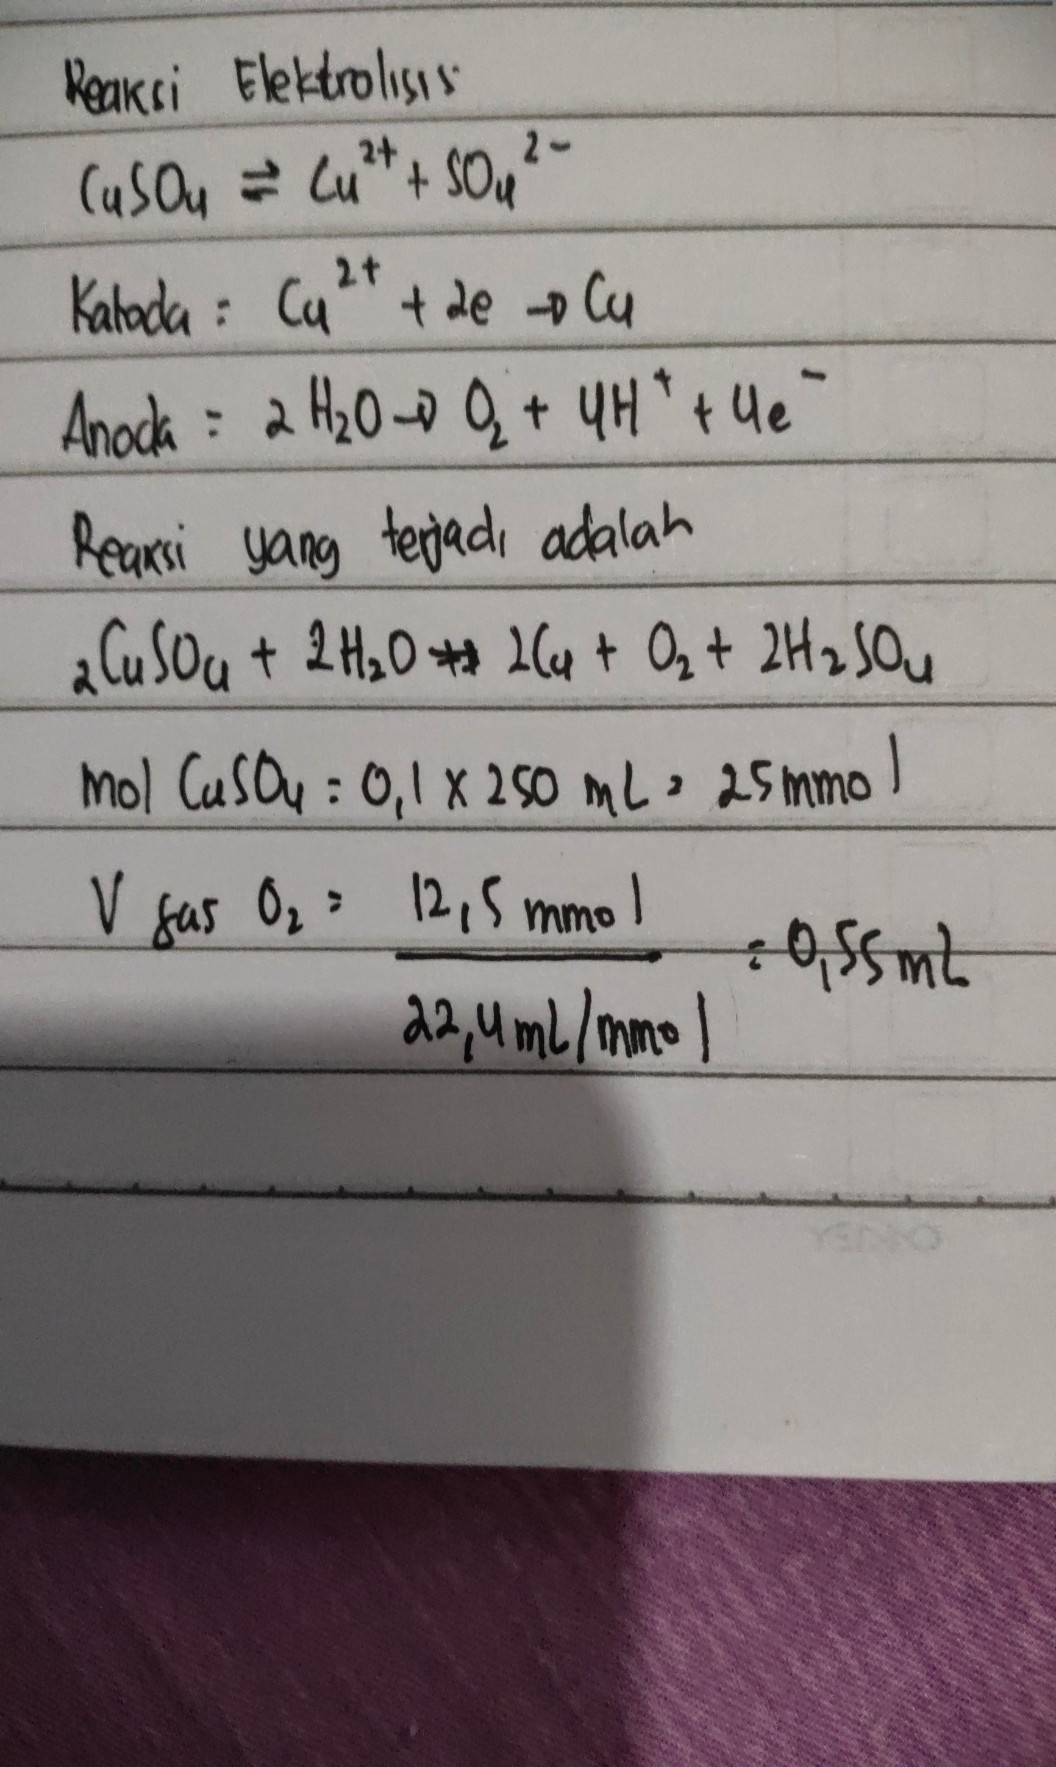 Reaksi Elektrolisis
CuSO4 ⇌ Cu²⁺ + SO4²⁻
Katoda = Cu²⁺ + 2e → Cu
Anoda = 2 H₂O → O₂ + 4H⁺ + 4e⁻
Reaksi yang terjadi adalah
2CuSO4 + 2H₂O → 2Cu + O₂ + 2H₂SO4
mol CuSO4 = 0,1 x 250 mL = 25 mmol
V gas O₂ = 12,5 mmol / 22,4 mL/mmol = 0,55 mL